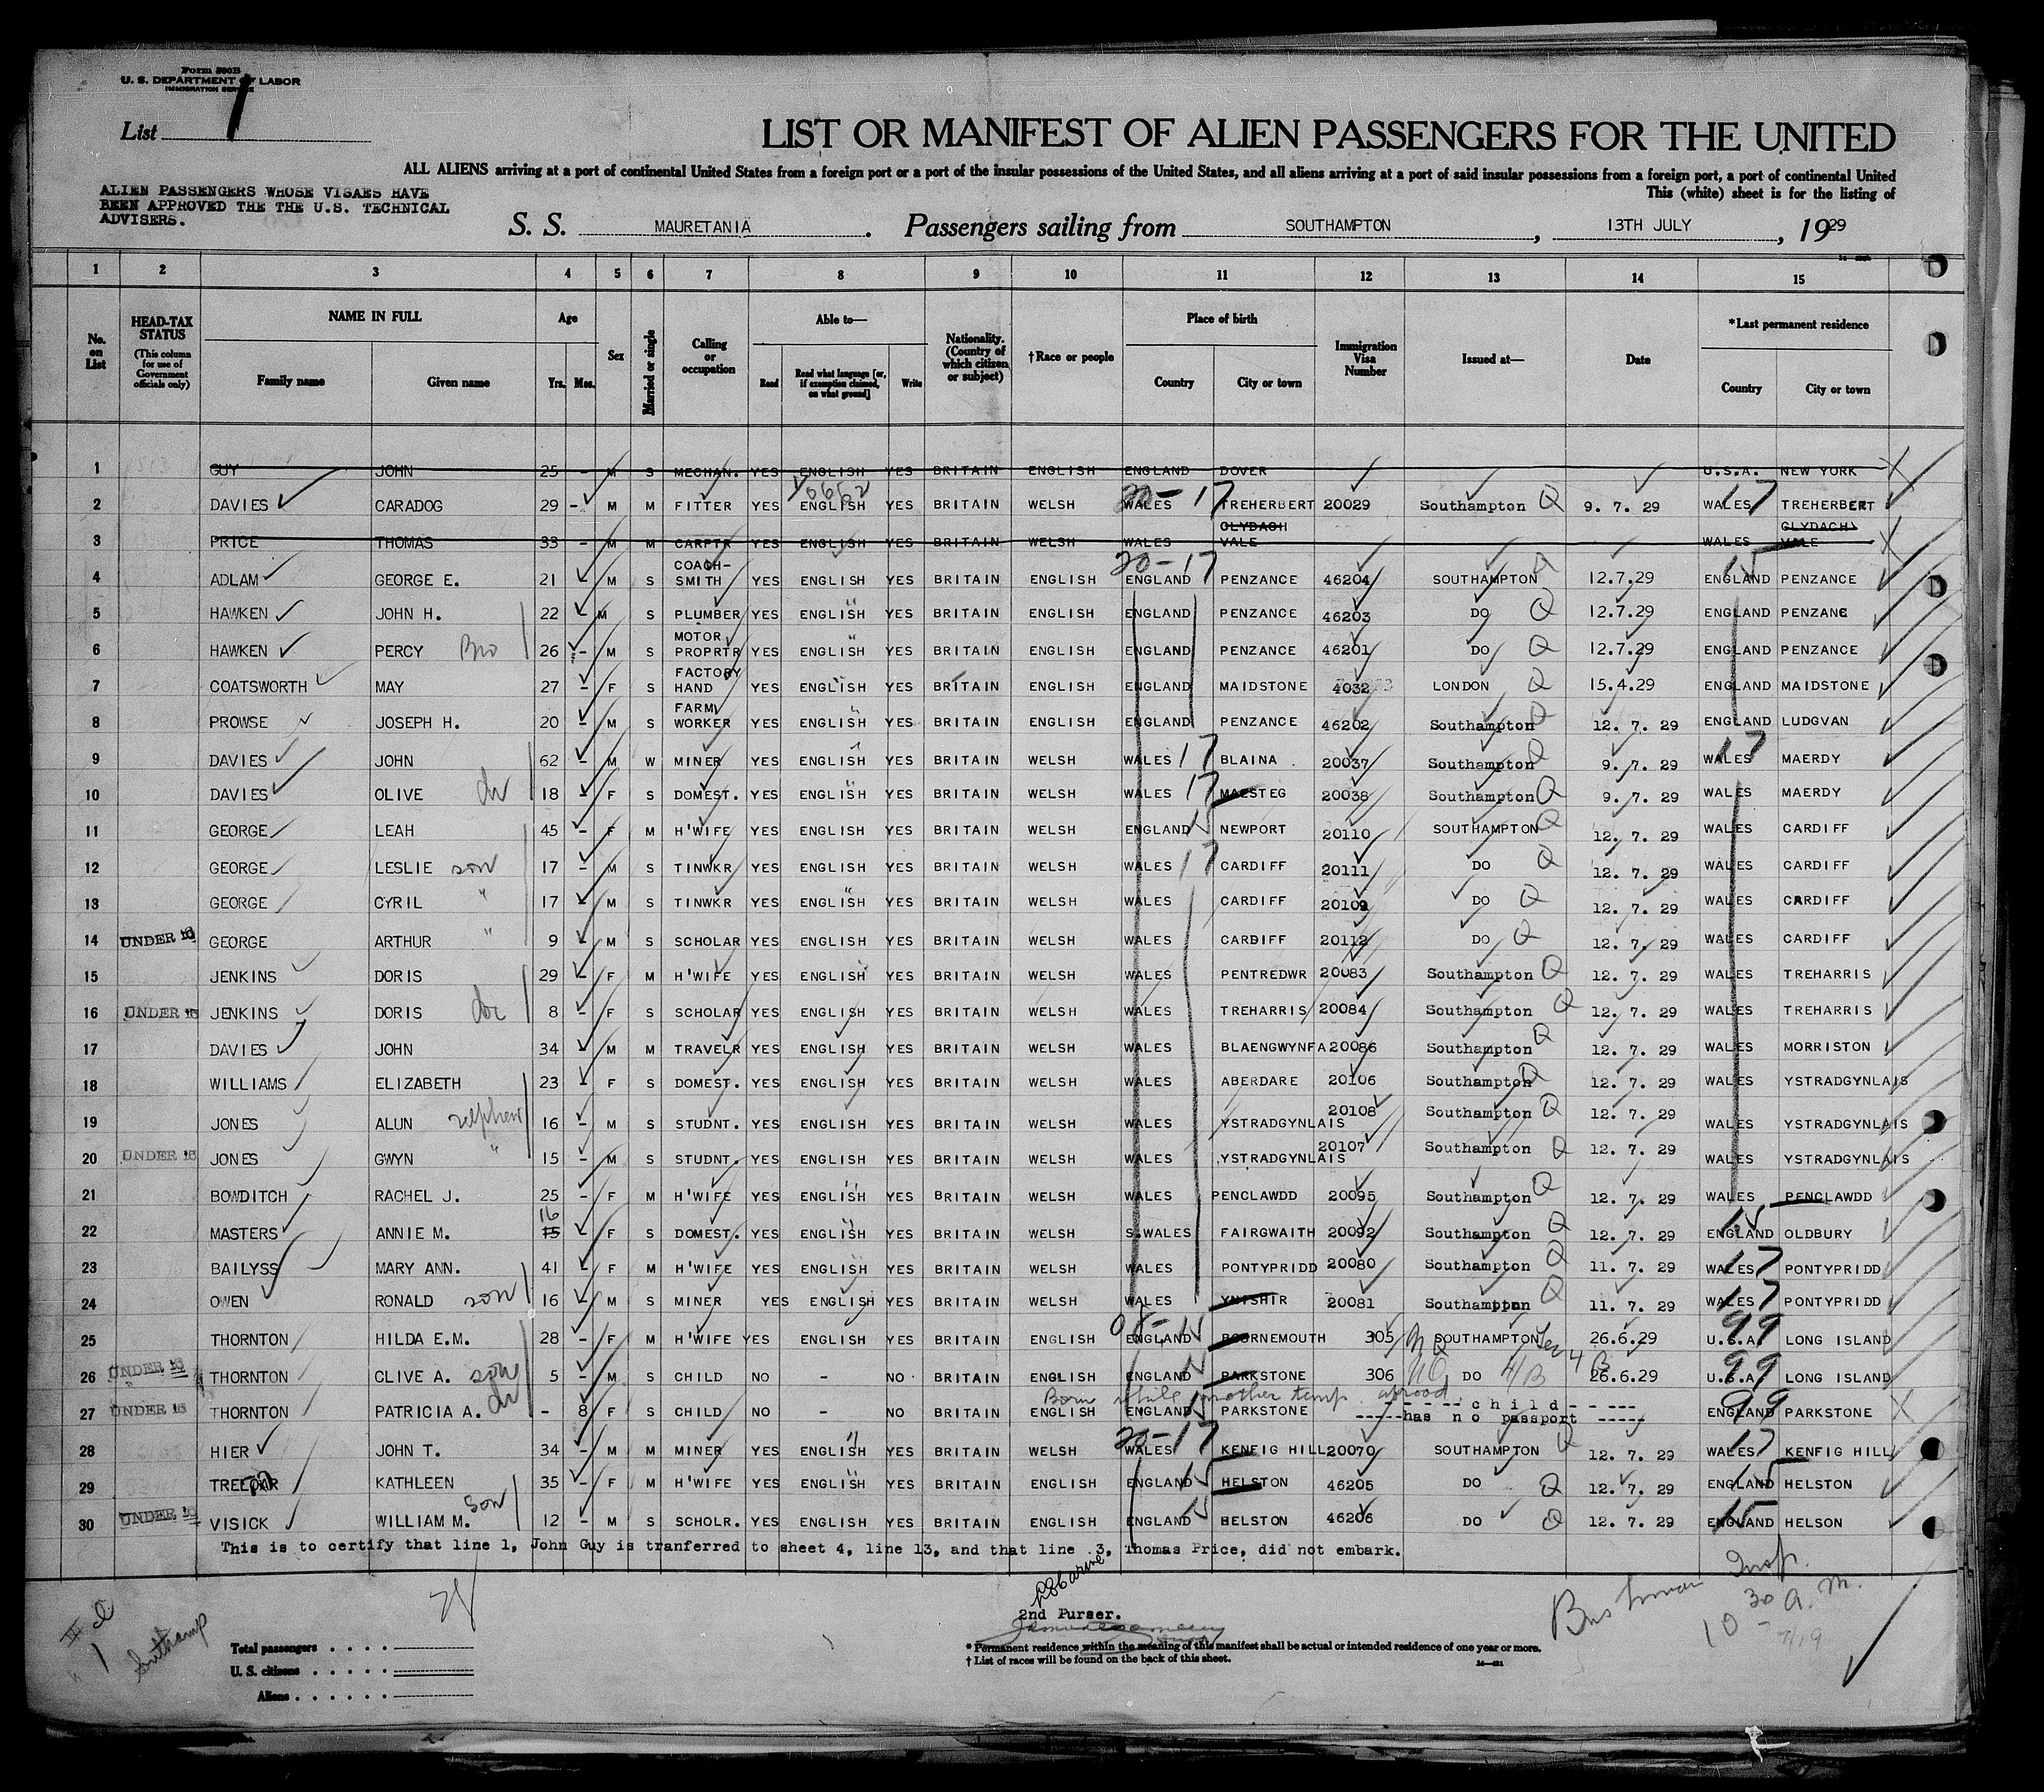 Form 500B
U. S. DEPARTMENT OF LABOR
IMMIGRATION SERVICE
List 1
LIST OR MANIFEST OF ALIEN PASSENGERS FOR THE UNITED
ALL ALIENS arriving at a port of continental United States from a foreign port or a port of the insular possessions of the United States, and all aliens arriving at a port of said insular possessions from a foreign port, a port of continental United
This (white) sheet is for the listing of
ALIEN PASSENGERS WHOSE VISAES HAVE
BEEN APPROVED THE THE U.S. TECHNICAL
ADVISERS.
S. S. MAURETANIA . Passengers sailing from SOUTHAMPTON , 13TH JULY , 1929
1 2 3 4 5 6 7 8 9 10 11 12 13 14 15
No. on List
HEAD-TAX STATUS (This column for use of Government officials only)
NAME IN FULL Family name Given name
Age Yrs. Mos.
Sex
Married or single
Calling or occupation
Able to— Read Read what language [or, if exemption claimed, on what ground] Write
Nationality. (Country of which citizen or subject)
†Race or people
Place of birth Country City or town
Immigration Visa Number
Issued at—
Date
*Last permanent residence Country City or town
1 GUY JOHN 25 - M S MECHAN. YES ENGLISH YES BRITAIN ENGLISH ENGLAND DOVER U.S.A. NEW YORK
2 DAVIES CARADOG 29 - M M FITTER YES ENGLISH YES BRITAIN WELSH WALES 20-17 TREHERBERT 20029 Southampton Q 9. 7. 29 WALES 17 TREHERBERT
3 PRICE THOMAS 33 - M M CARPTR YES ENGLISH YES BRITAIN WELSH WALES CLYDACH VALE WALES CLYDACH VALE
4 ADLAM GEORGE E. 21 - M S COACH-SMITH YES ENGLISH YES BRITAIN ENGLISH ENGLAND 20-17 PENZANCE 46204 SOUTHAMPTON Q 12.7.29 ENGLAND 15 PENZANCE
5 HAWKEN JOHN H. 22 - M S PLUMBER YES ENGLISH YES BRITAIN ENGLISH ENGLAND PENZANCE 46203 DO Q 12.7.29 ENGLAND PENZANC
6 HAWKEN PERCY Bro 26 - M S MOTOR PROPRTR YES ENGLISH YES BRITAIN ENGLISH ENGLAND PENZANCE 46201 DO Q 12.7.29 ENGLAND PENZANCE
7 COATSWORTH MAY 27 - F S FACTORY HAND YES ENGLISH YES BRITAIN ENGLISH ENGLAND MAIDSTONE 4032 LONDON Q 15.4.29 ENGLAND MAIDSTONE
8 PROWSE JOSEPH H. 20 - M S FARM WORKER YES ENGLISH YES BRITAIN ENGLISH ENGLAND PENZANCE 46202 Southampton Q 12. 7. 29 ENGLAND LUDGVAN
9 DAVIES JOHN 62 - M W MINER YES ENGLISH YES BRITAIN WELSH WALES 17 BLAINA . 20037 Southampton Q 9. 7. 29 WALES 17 MAERDY
10 DAVIES OLIVE dr 18 - F S DOMEST. YES ENGLISH YES BRITAIN WELSH WALES 17 MAESTEG 20038 Southampton Q 9. 7. 29 WALES MAERDY
11 GEORGE LEAH 45 - F M H'WIFE YES ENGLISH YES BRITAIN WELSH ENGLAND 15 NEWPORT 20110 SOUTHAMPTON Q 12. 7. 29 WALES CARDIFF
12 GEORGE LESLIE son 17 - M S TINWKR YES ENGLISH YES BRITAIN WELSH WALES 17 CARDIFF 20111 DO Q 12. 7. 29 WALES CARDIFF
13 GEORGE CYRIL " 17 - M S TINWKR YES ENGLISH YES BRITAIN WELSH WALES CARDIFF 20109 DO Q 12. 7. 29 WALES CARDIFF
14 UNDER 16 GEORGE ARTHUR " 9 - M S SCHOLAR YES ENGLISH YES BRITAIN WELSH WALES CARDIFF 20112 DO Q 12. 7. 29 WALES CARDIFF
15 JENKINS DORIS 29 - F M H'WIFE YES ENGLISH YES BRITAIN WELSH WALES PENTREDWR 20083 Southampton Q 12. 7. 29 WALES TREHARRIS
16 UNDER 16 JENKINS DORIS dr 8 - F S SCHOLAR YES ENGLISH YES BRITAIN WELSH WALES TREHARRIS 20084 Southampton Q 12. 7. 29 WALES TREHARRIS
17 DAVIES JOHN 34 - M M TRAVELR YES ENGLISH YES BRITAIN WELSH WALES BLAENGWYNFA 20086 Southampton Q 12. 7. 29 WALES MORRISTON
18 WILLIAMS ELIZABETH 23 - F S DOMEST. YES ENGLISH YES BRITAIN WELSH WALES ABERDARE 20106 Southampton Q 12. 7. 29 WALES YSTRADGYNLAIS
19 JONES ALUN nephew 16 - M S STUDNT. YES ENGLISH YES BRITAIN WELSH WALES YSTRADGYNLAIS 20108 Southampton Q 12. 7. 29 WALES YSTRADGYNLAIS
20 UNDER 16 JONES GWYN " 15 - M S STUDNT. YES ENGLISH YES BRITAIN WELSH WALES YSTRADGYNLAIS 20107 Southampton Q 12. 7. 29 WALES YSTRADGYNLAIS
21 BOWDITCH RACHEL J. 25 - F M H'WIFE YES ENGLISH YES BRITAIN WELSH WALES PENCLAWDD 20095 Southampton Q 12. 7. 29 WALES PENCLAWDD
22 MASTERS ANNIE M. 16 15 - F S DOMEST. YES ENGLISH YES BRITAIN WELSH S.WALES FAIRGWAITH 20092 Southampton Q 12. 7. 29 ENGLAND 15 OLDBURY
23 BAILYSS MARY ANN. 41 - F M H'WIFE YES ENGLISH YES BRITAIN WELSH WALES PONTYPRIDD 20080 Southampton Q 11. 7. 29 WALES 17 PONTYPRIDD
24 OWEN RONALD son 16 - M S MINER YES ENGLISH YES BRITAIN WELSH WALES YNISHIR 20081 Southampton Q 11. 7. 29 WALES 17 PONTYPRIDD
25 THORNTON HILDA E.M. 28 - F M H'WIFE YES ENGLISH YES BRITAIN ENGLISH ENGLAND 15 BOURNEMOUTH 305 SOUTHAMPTON 26.6.29 U.S.A. 99 LONG ISLAND
26 UNDER 16 THORNTON CLIVE A. son 5 - M S CHILD NO - NO BRITAIN ENGLISH ENGLAND PARKSTONE 306 NQ DO 4/B 26.6.29 U.S.A. 99 LONG ISLAND
Born while mother temp. abroad
27 UNDER 16 THORNTON PATRICIA A. dr - 8 F S CHILD NO - NO BRITAIN ENGLISH ENGLAND PARKSTONE - - - - - child - - - - - - -has no passport - - - - - ENGLAND 99 PARKSTONE
28 HIER JOHN T. 34 - M M MINER YES ENGLISH YES BRITAIN WELSH WALES 20-17 KENFIG HILL 20070 SOUTHAMPTON Q 12. 7. 29 WALES 17 KENFIG HILL
29 KATHLEEN 35 - F M H'WIFE YES ENGLISH YES BRITAIN ENGLISH ENGLAND 15 HELSTON 46205 DO Q 12. 7. 29 ENGLAND 15 HELSTON
30 UNDER 16 VISICK WILLIAM M. son 12 - M S SCHOLR. YES ENGLISH YES BRITAIN ENGLISH ENGLAND 15 HELSTON 46206 DO Q 12. 7. 29 ENGLAND 15 HELSON
This is to certify that line 1, John Guy is tranferred to sheet 4, line 13, and that line 3, Thomas Price, did not embark.
2nd Purser.
Insp.
10 30 a. m.
Southamp
Total passengers . . . .
U. S. citizens . . . . .
Aliens . . . . . .
* Permanent residence within the meaning of this manifest shall be actual or intended residence of one year or more.
† List of races will be found on the back of this sheet.